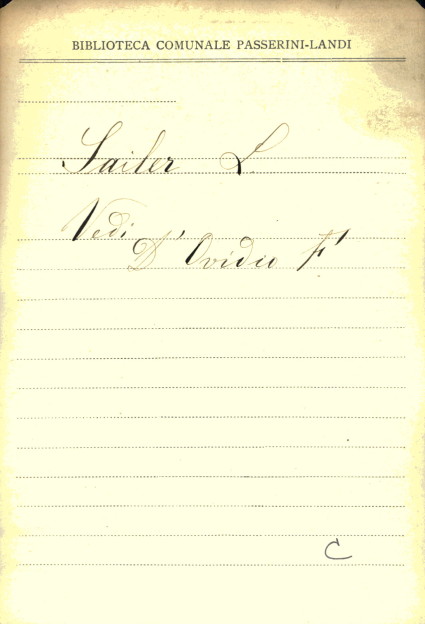 BIBLIOTECA COMUNALE PASSERINI-LANDI
Sailer L.
Vedi
D'Ovidio F.
C